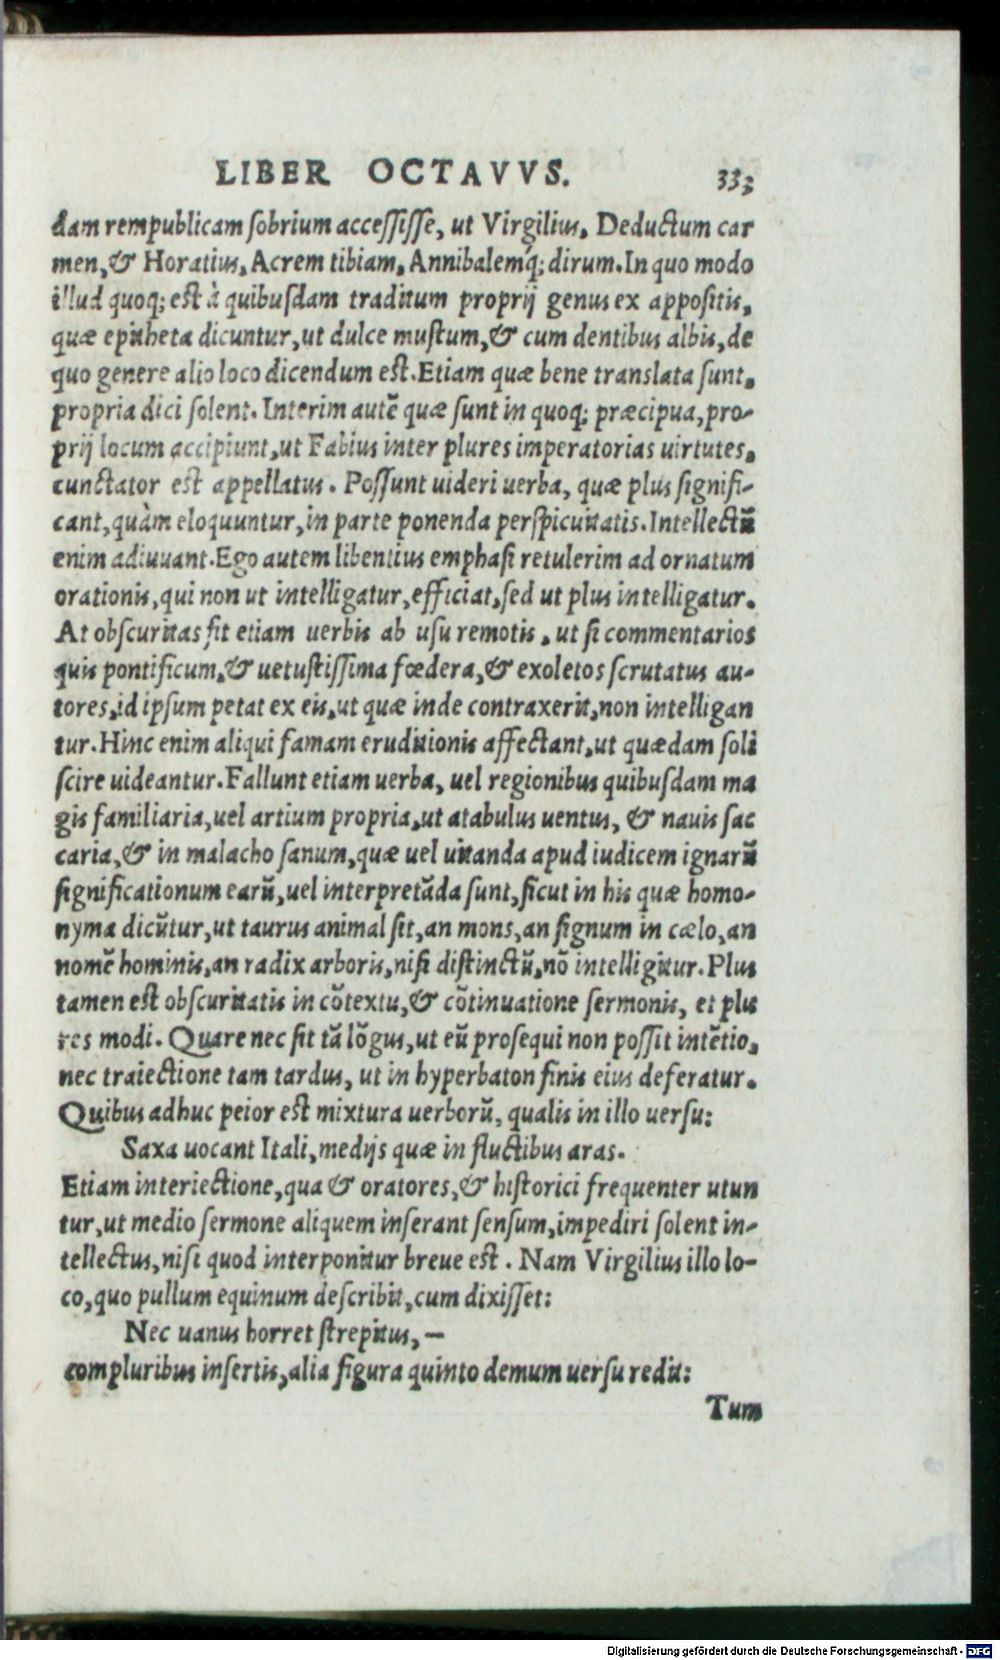 LIBER OCTAVVS. 333
dam rempublicam ſobrium acceſſiſſe, ut Virgilius. Deductum car
men, & Horatius, Acrem tibiam, Annibalemq́; dirum. In quo modo
illud quoq; est à quibuſdam traditum proprij genus ex appoſitis,
quæ epitheta dicuntur, ut dulce muſtum, & cum dentibus albis, de
quo genere alio loco dicendum eſt. Etiam quæ bene translata ſunt,
propria dici ſolent. Interim autē quæ ſunt in quoq; præcipua, pro-
prij locum accipiunt, ut Fabius inter plures imperatorias uirtutes,
cunctator eſt appellatus. Poſſunt uideri uerba, quæ plus ſignifi-
cant, quàm eloquuntur, in parte ponenda perſpicuitatis. Intellectū
enim adiuuant. Ego autem libentius emphaſi retulerim ad ornatum
orationis, qui non ut intelligatur, efficiat, ſed ut plus intelligatur.
At obſcuritas fit etiam uerbis ab uſu remotis, ut ſi commentarios
quis pontificum, & uetuſtiſſima fœdera, & exoletos ſcrutatus au-
tores, id ipſum petat ex eis, ut quæ inde contraxerit, non intelligan
tur. Hinc enim aliqui famam eruditionis affectant, ut quædam ſoli
ſcire uideantur. Fallunt etiam uerba, uel regionibus quibuſdam ma
gis familiaria, uel artium propria, ut atabulus uentus, & nauis ſac
caria, & in malacho ſanum, quæ uel uitanda apud iudicem ignarū
ſignificationum earū, uel interpretāda ſunt, ſicut in his quæ homo-
nyma dicūtur, ut taurus animal ſit, an mons, an ſignum in cælo, an
nomē hominis, an radix arboris, niſi diſtinctū, nō intelligitur. Plus
tamen eſt obſcuritatis in cōtextu, & cōtinuatione ſermonis, et plu
res modi. Quare nec ſit tā lōgus, ut eū proſequi non poſſit intētio,
nec traiectione tam tardus, ut in hyperbaton finis eius deferatur.
Quibus adhuc peior eſt mixtura uerborū, qualis in illo uerſu:
Saxa uocant Itali, medijs quæ in fluctibus aras.
Etiam interiectione, qua & oratores, & hiſtorici frequenter utun
tur, ut medio ſermone aliquem inſerant ſenſum, impediri ſolent in-
tellectus, niſi quod interponitur breue eſt. Nam Virgilius illo lo-
co, quo pullum equinum deſcribit, cum dixiſſet:
Nec uanus horret ſtrepitus, —
compluribus inſertis, alia figura quinto demum uerſu redit:
Tum
Digitalisierung gefördert durch die Deutsche Forschungsgemeinschaft - DFG